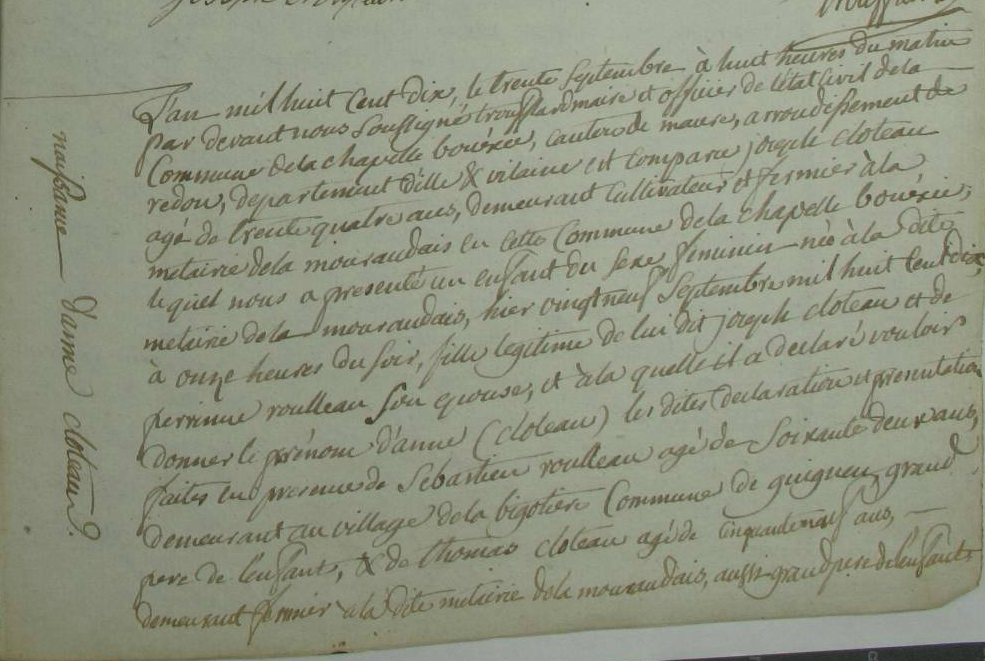 L'an mil huit Cent dix, le trente septembre à huit heures du matin
par devant nous Soussigné trouffard maire et officier de l'état Civil de la
Commune de la chapelle bouëxic, canton de maure, arrondissement de
redon, departement d'ille & vilaine est comparu joseph cloteau
agé de trente quatre ans, demeurant Cultivateur et fermier à la
metairie de la mouraudais en cette Commune de la chapelle bouëxic,
lequel nous a presenté un enfant du sexe feminin née à la dite
metairie de la mouraudais, hier vingt neuf Septembre mil huit Cent dix
à onze heures du soir, fille legitime de lui dit joseph cloteau et de
perrinne roulleau son epouse, et à la quelle il a declaré vouloir
donner le prénom d'anne (cloteau) les dites declaration et presentation
faites en presence de Sébastien roulleau agé de Soixante deux ans,
demeurant au village de la bigotiere Commune de guignen, grand
pere de l'enfant, & de thomas cloteau agé de Cinquante neuf ans,
demeurant fermier à la dite metairie de la mouraudais, aussi grand pere de l'enfant
naissance d'anne cloteau.